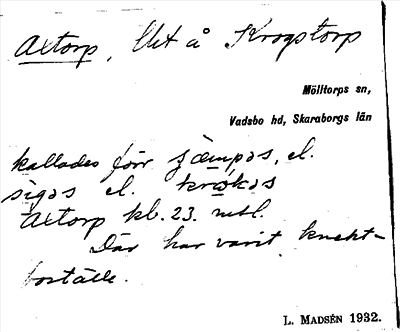 Axtorp, Ut å Krogstorp
Mölltorps sn,
Vadsbo hd, Skaraborgs län
kallades förr sjæmpəs, el.
sigəs el. krøkəs
Axtorp kb. 23. mtl.
Där har varit knekt-
boställe.
L. MADSÉN 1932.